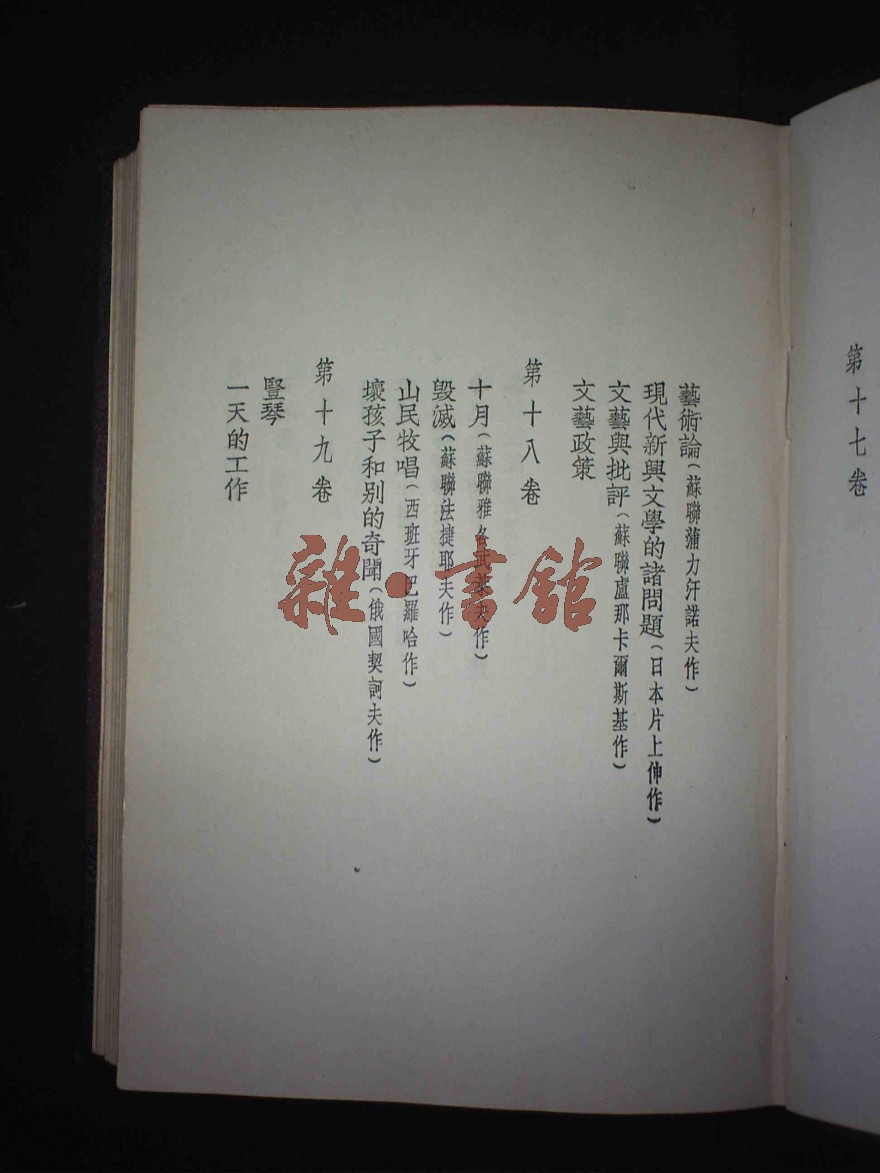 第十七卷
藝術論（蘇聯蒲力汗諾夫作）
現代新興文學的諸問題（日本片上伸作）
文藝與批評（蘇聯盧那卡爾斯基作）
文藝政策
第十八卷
十月（蘇聯雅各武萊夫作）
毀滅（蘇聯法捷耶夫作）
山民牧唱（西班牙巴羅哈作）
壞孩子和別的奇聞（俄國契訶夫作）
第十九卷
豎琴
一天的工作
雜·書館